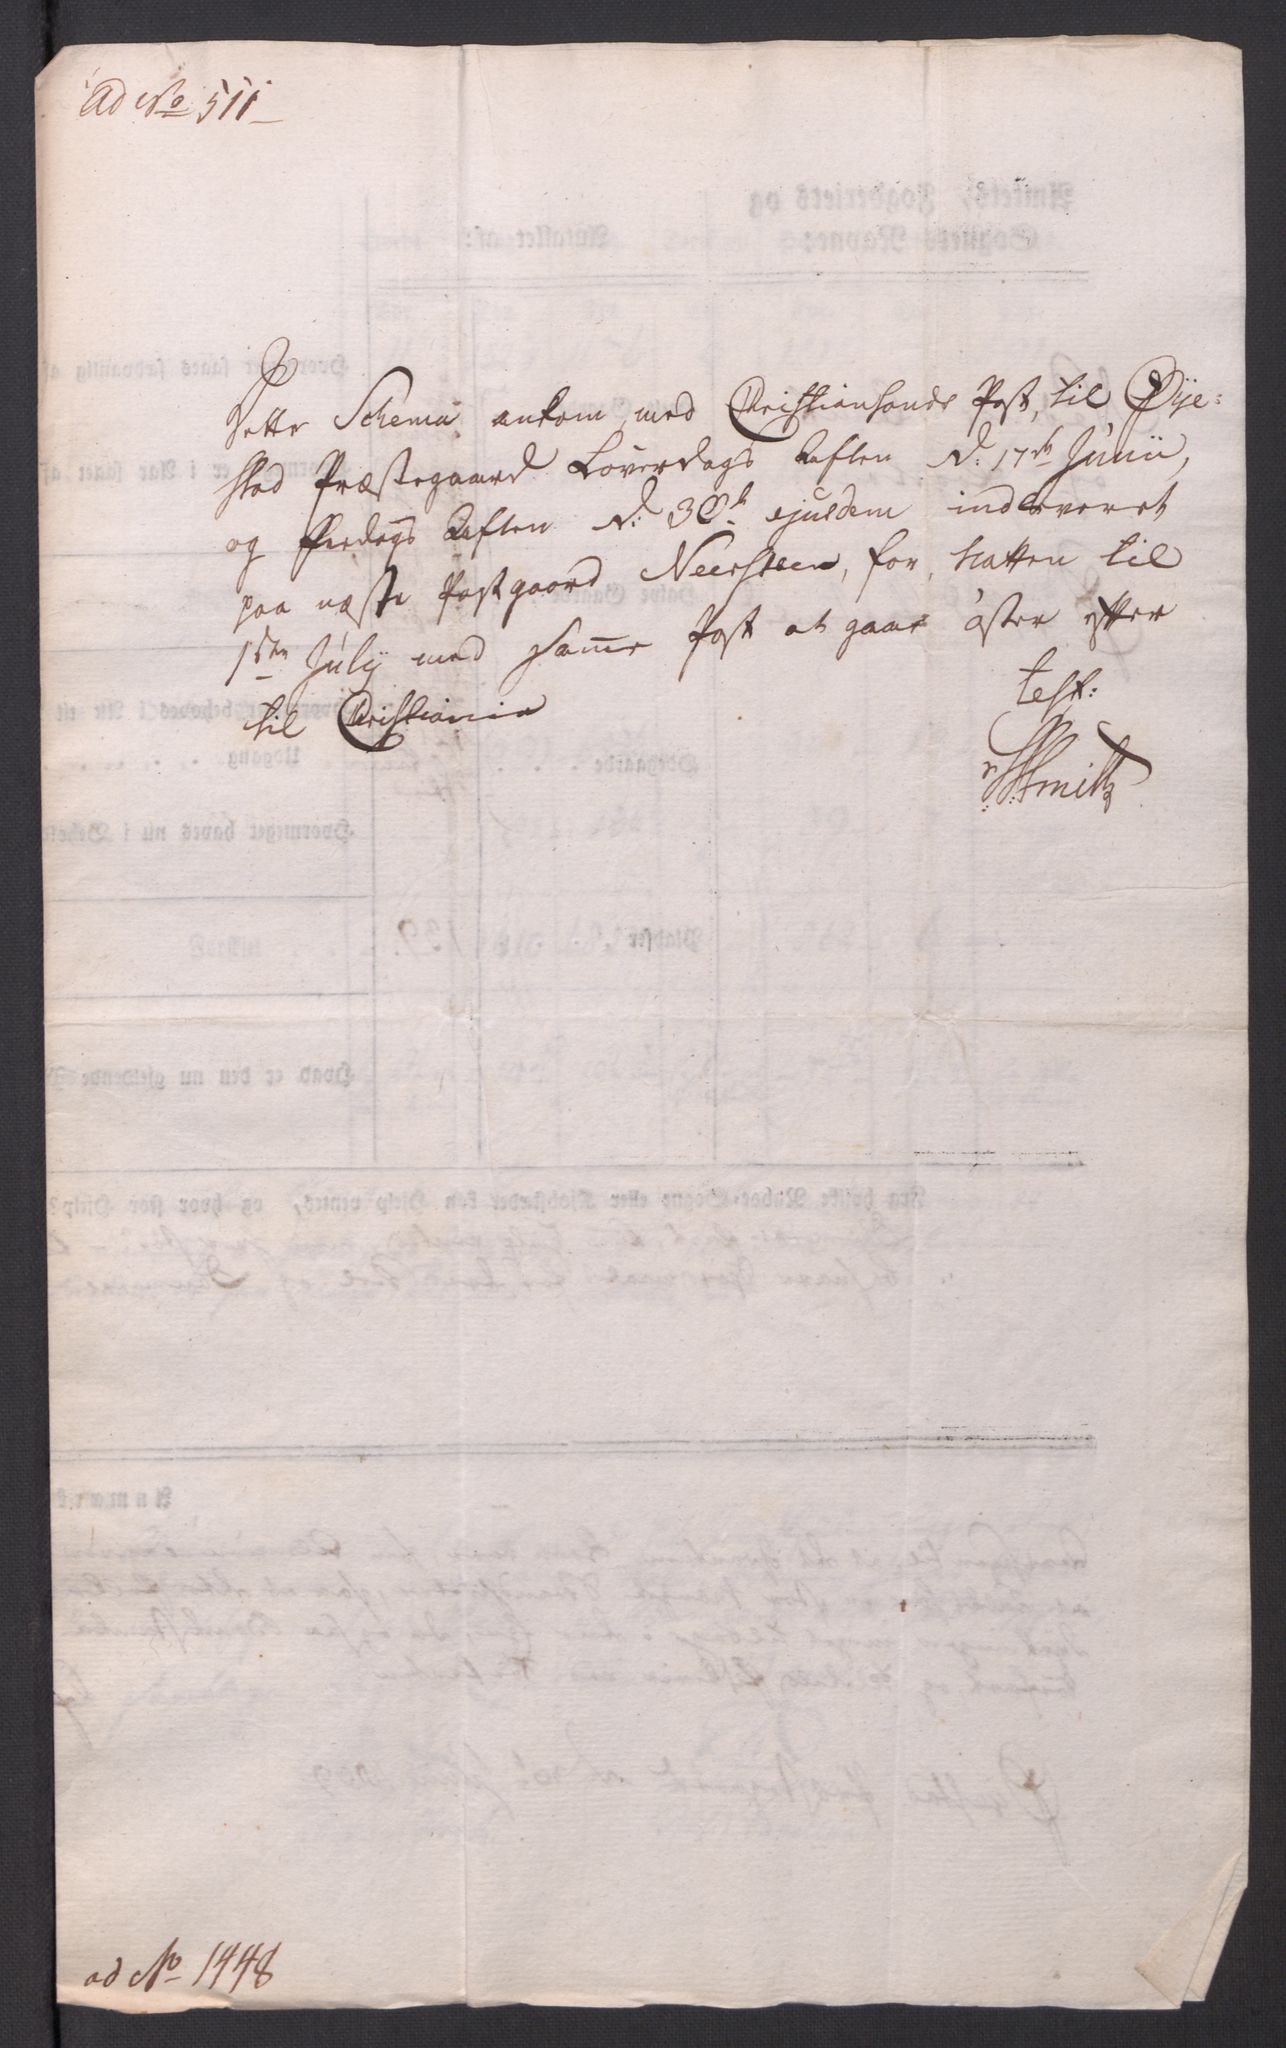 Ad No 511
Dette Schema ankom med Christiansands Post, til Øije-
stad Præstegaard Løverdags Aften d: 17de Junii,
og Fredags Aften d: 30te ejusdem indleveret
paa næste Postgaard Neersteen, for Natten til
1ste Julij med samme Post at gaae øster efter
til Christiania
test:
Smith
ad No 1448